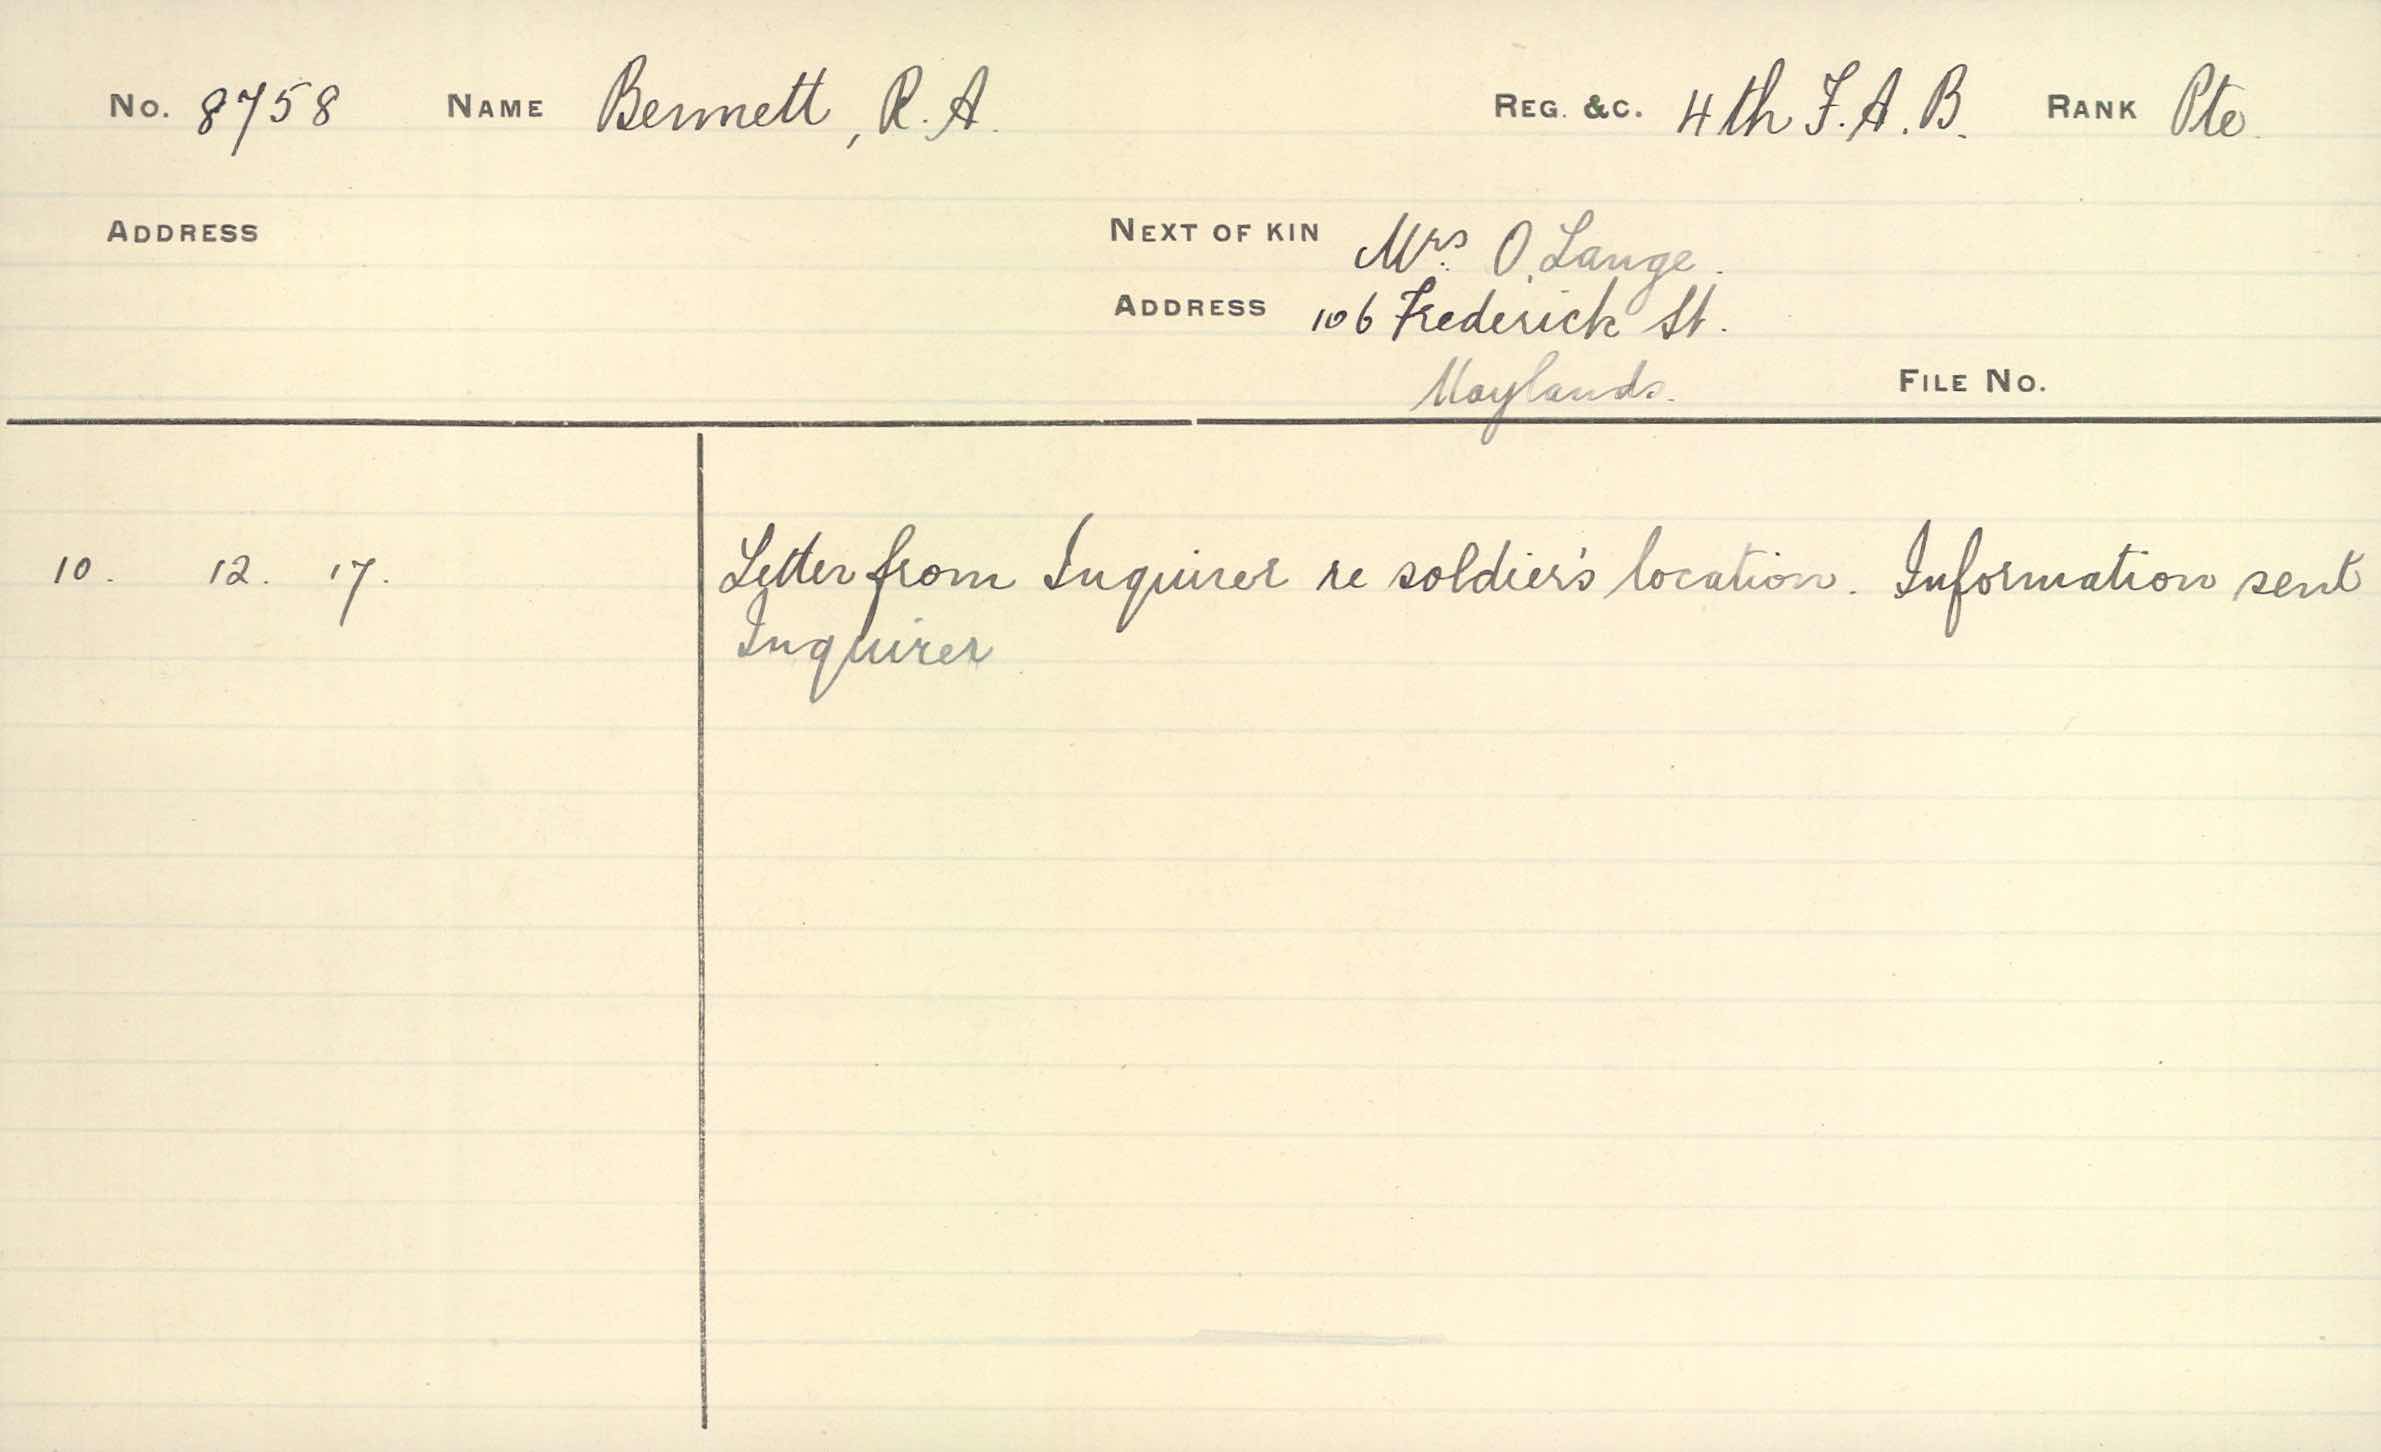 No. 8758 NAME Bennett, R. A. REG. &C. 4th F. A. B. RANK Pte.
ADDRESS NEXT OF KIN Mrs. O. Lange.
ADDRESS 106 Frederick St.
Maylands. FILE No.
10. 12. 17. Letter from Inquirer re soldier's location. Information sent
Inquirer